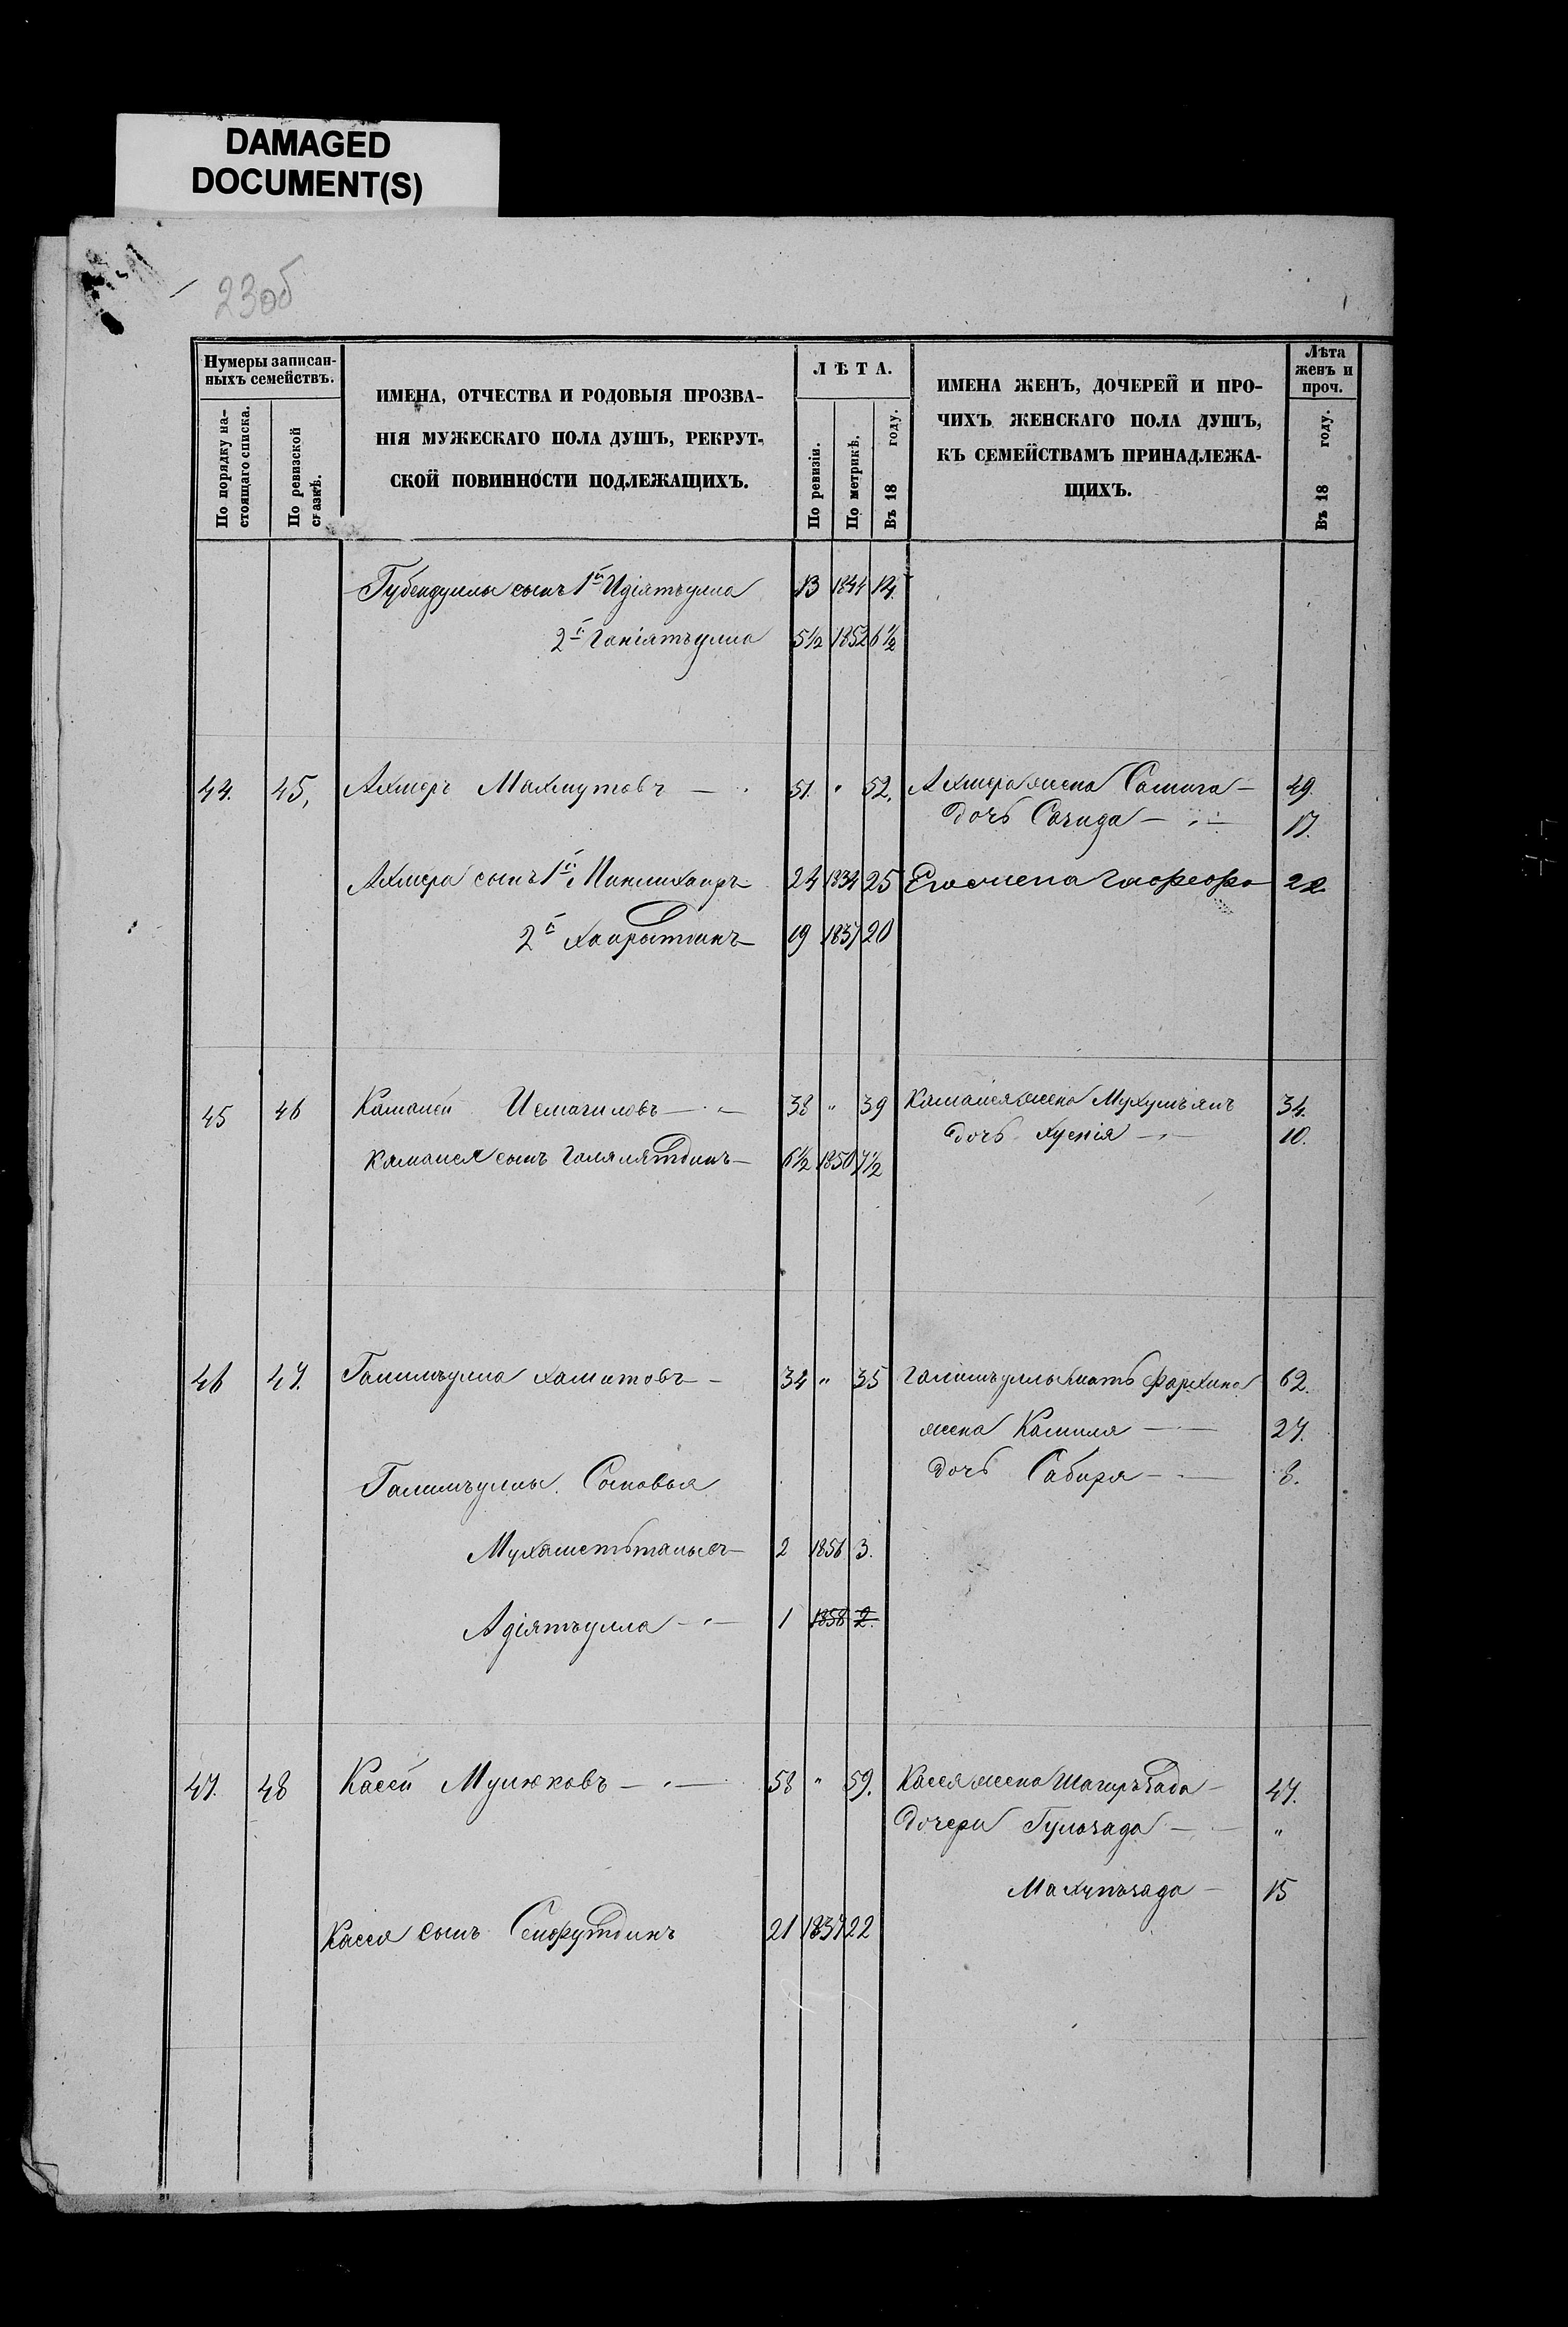 DAMAGED
DOCUMENT(S)
23об
Нумеры записан-
ныхъ семействъ.
По порядку на-
стоящаго списка.
По ревизской
сказкѣ.
ИМЕНА, ОТЧЕСТВА И РОДОВЫЯ ПРОЗВА-
НІЯ МУЖЕСКАГО ПОЛА ДУШЪ, РЕКРУТ-
СКОЙ ПОВИННОСТИ ПОДЛЕЖАЩИХЪ.
ЛѢТА.
По ревизіи.
По метрикѣ.
Въ 18 году.
ИМЕНА ЖЕНЪ, ДОЧЕРЕЙ И ПРО-
ЧИХЪ ЖЕНСКАГО ПОЛА ДУШЪ,
КЪ СЕМЕЙСТВАМЪ ПРИНАДЛЕЖА-
ЩИХЪ.
Лѣта
женъ и
проч.
Въ 18 году.
сынъ 1й Идіятъулла 13 1844 14
2й Ганіятъулла 5½ 1852 6½
44. 45, Ахмеръ Махмутовъ — 51. " 52, Ахмера жена — 49.
дочь Сагида — 17.
Ахмера сынъ 1й Минлихаиръ 24 1834 25 Его жена 22
2й Хаирытинъ 19 1837 20
45 46 Каманей Исмагиловъ — 38 " 39 Каманея жена 34.
дочь Хуснія — 10.
Каманея сынъ Галялятдинъ — 6½ 1850 7½
46 47. Галимъулла Хамитовъ — 34 " 35 Галимъуллы мать Фархина 62.
жена Камиля — 27.
дочь Сабиря — 8.
Галимъуллы Сыновья
2 1856 3.
Адіятъулла — 1 1858 2.
47. 48 Кассей Мулюковъ — 58 " 59. Кассея жена Шагиръзада — 47.
дочери Гульзада — "
15
Кассея сынъ 21 1837 22